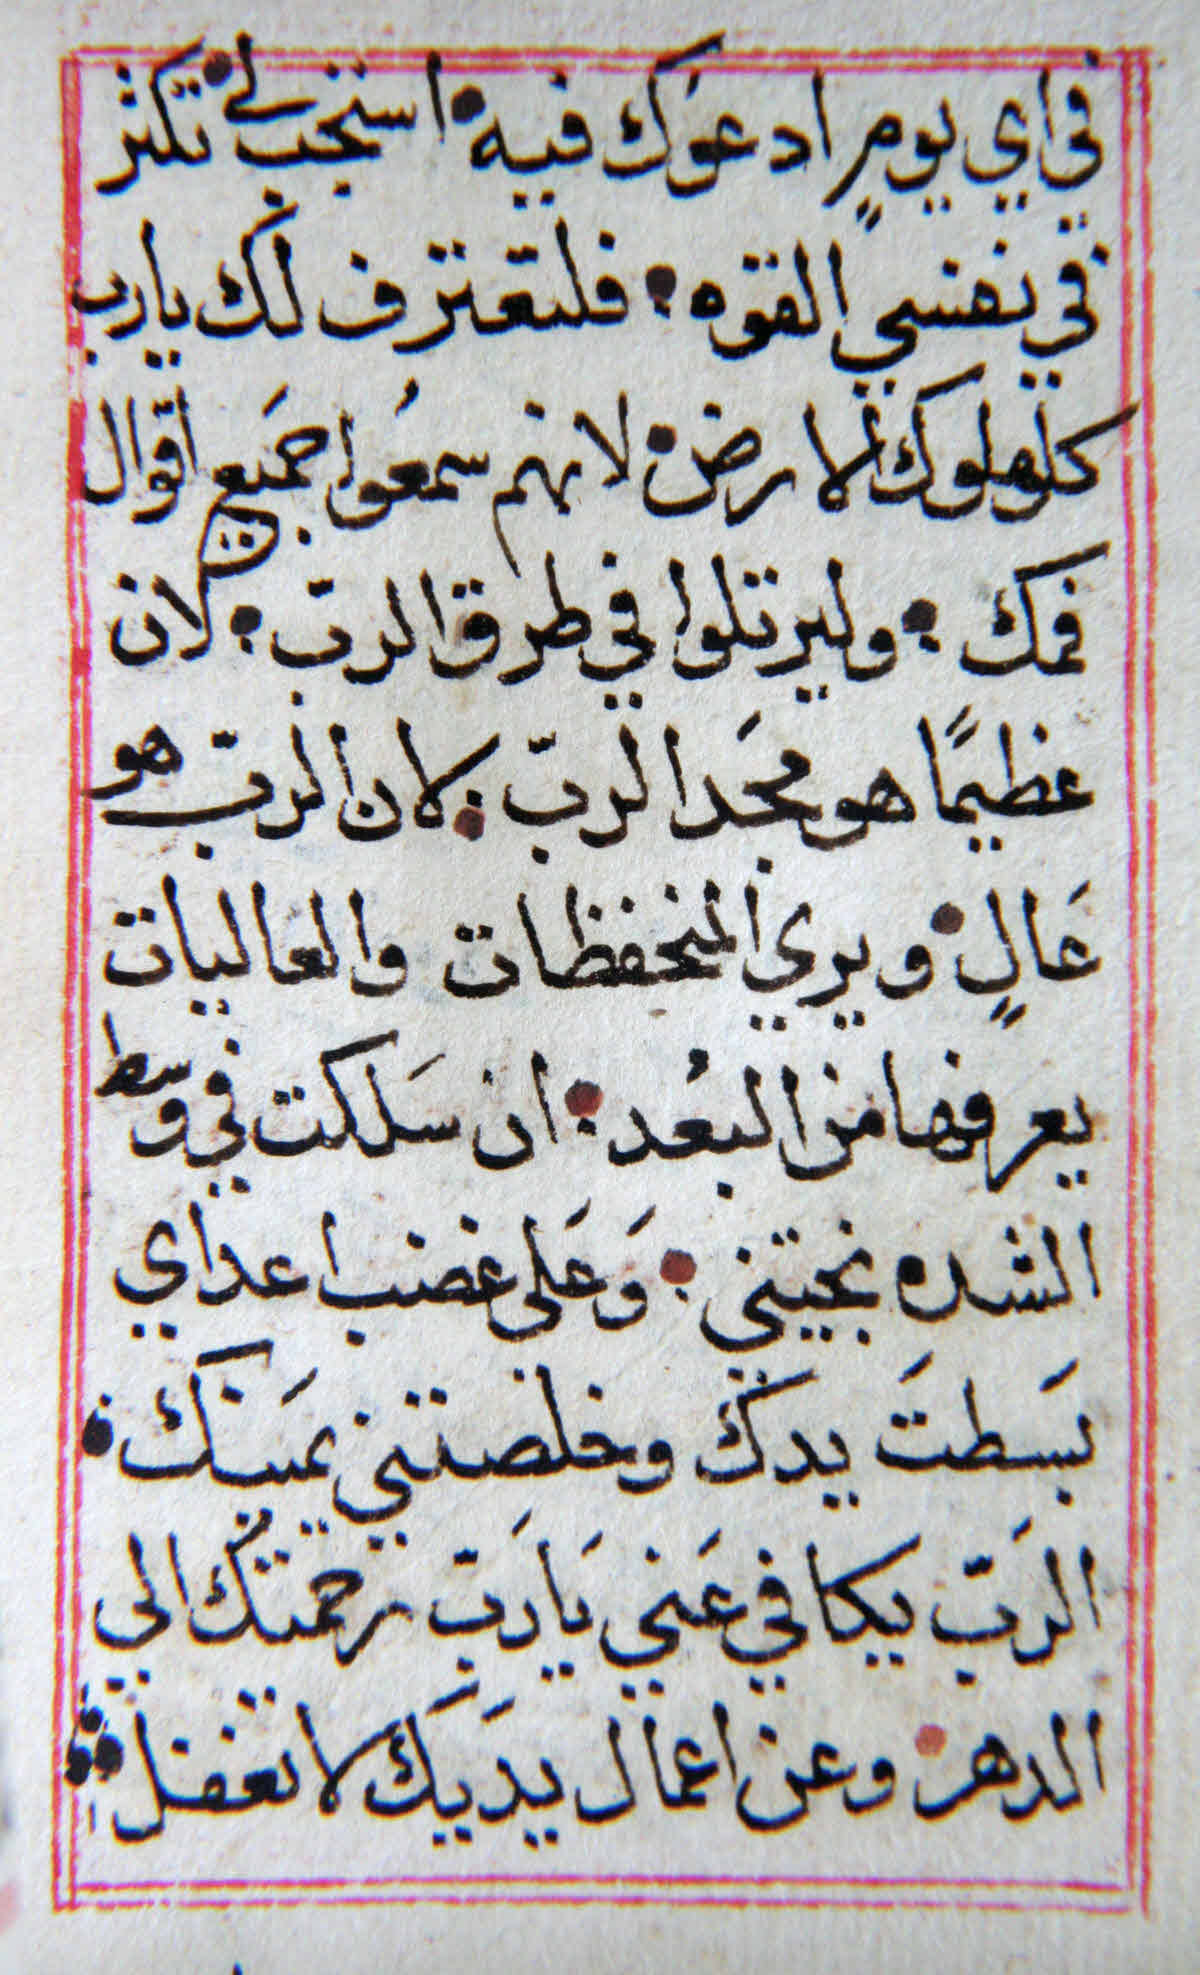 في اي يومٍ ادعوك فيه استجب لي تكثر
في نفسي القوه فلتعترف لك يارب
كل ملوك الارض لانهم سمعُوا جميع اقوال
فمك وليرتلوا في طرق الربّ لان
عظيمًا هو مجَد الربّ لان الربّ هو
عَالٍ ويري المنخفظات والعاليات
يعرفها من البعُد ان سَلكت في وسط
الشده نجيتني وَعَلي غضب اعداي
بسَطتَ يدك وخلصتني يمَينك
الرَبّ يكافي عَني يَارَبّ رحمتك الي
الدهر وعن اعمال يدَيَك لا تغفل